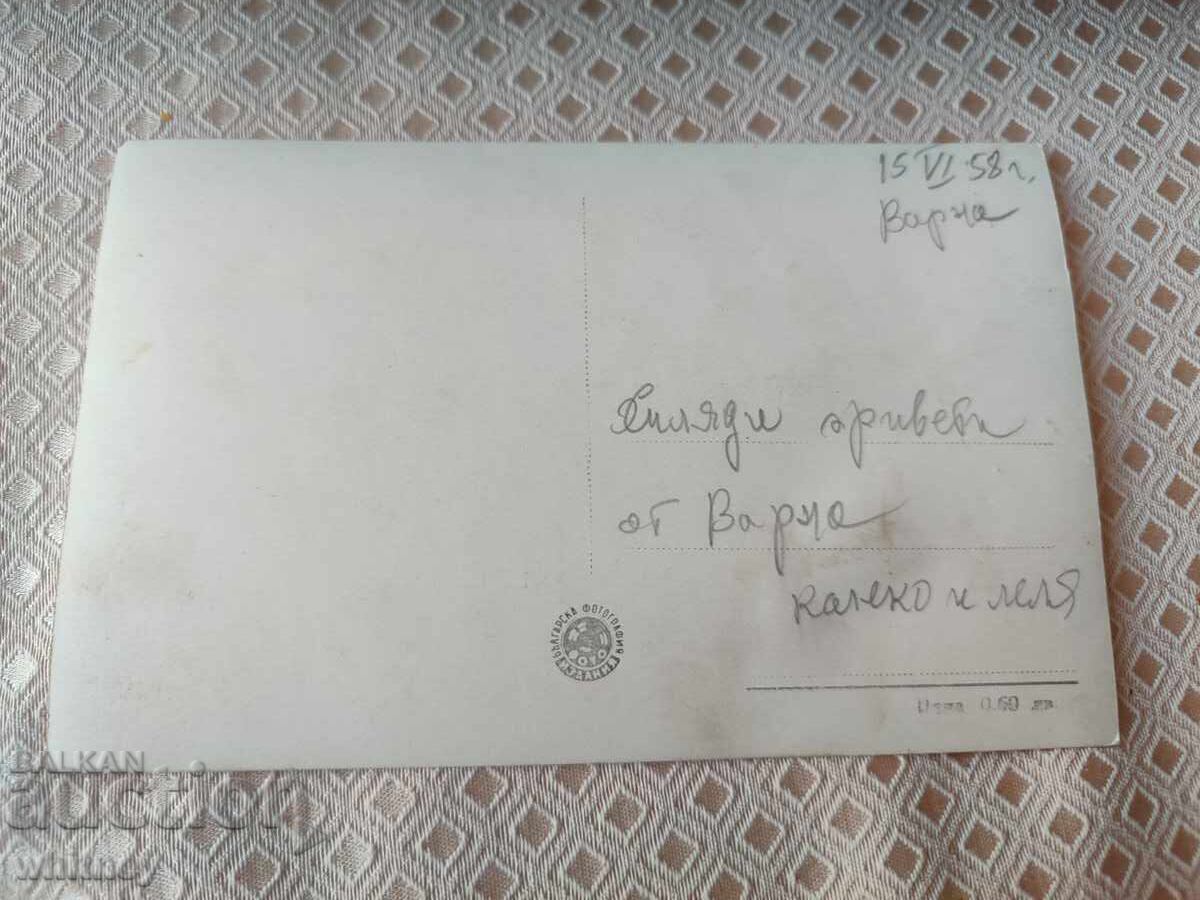 15 VI 58 г.
Варна
Хиляди привети
от Варна
калеко и леля
БЪЛГАРСКА ФОТОГРАФИЯ
ФОТО
ИЗДАНИЯ
Цена 0.60 лв.
BALKAN
auction
whitney